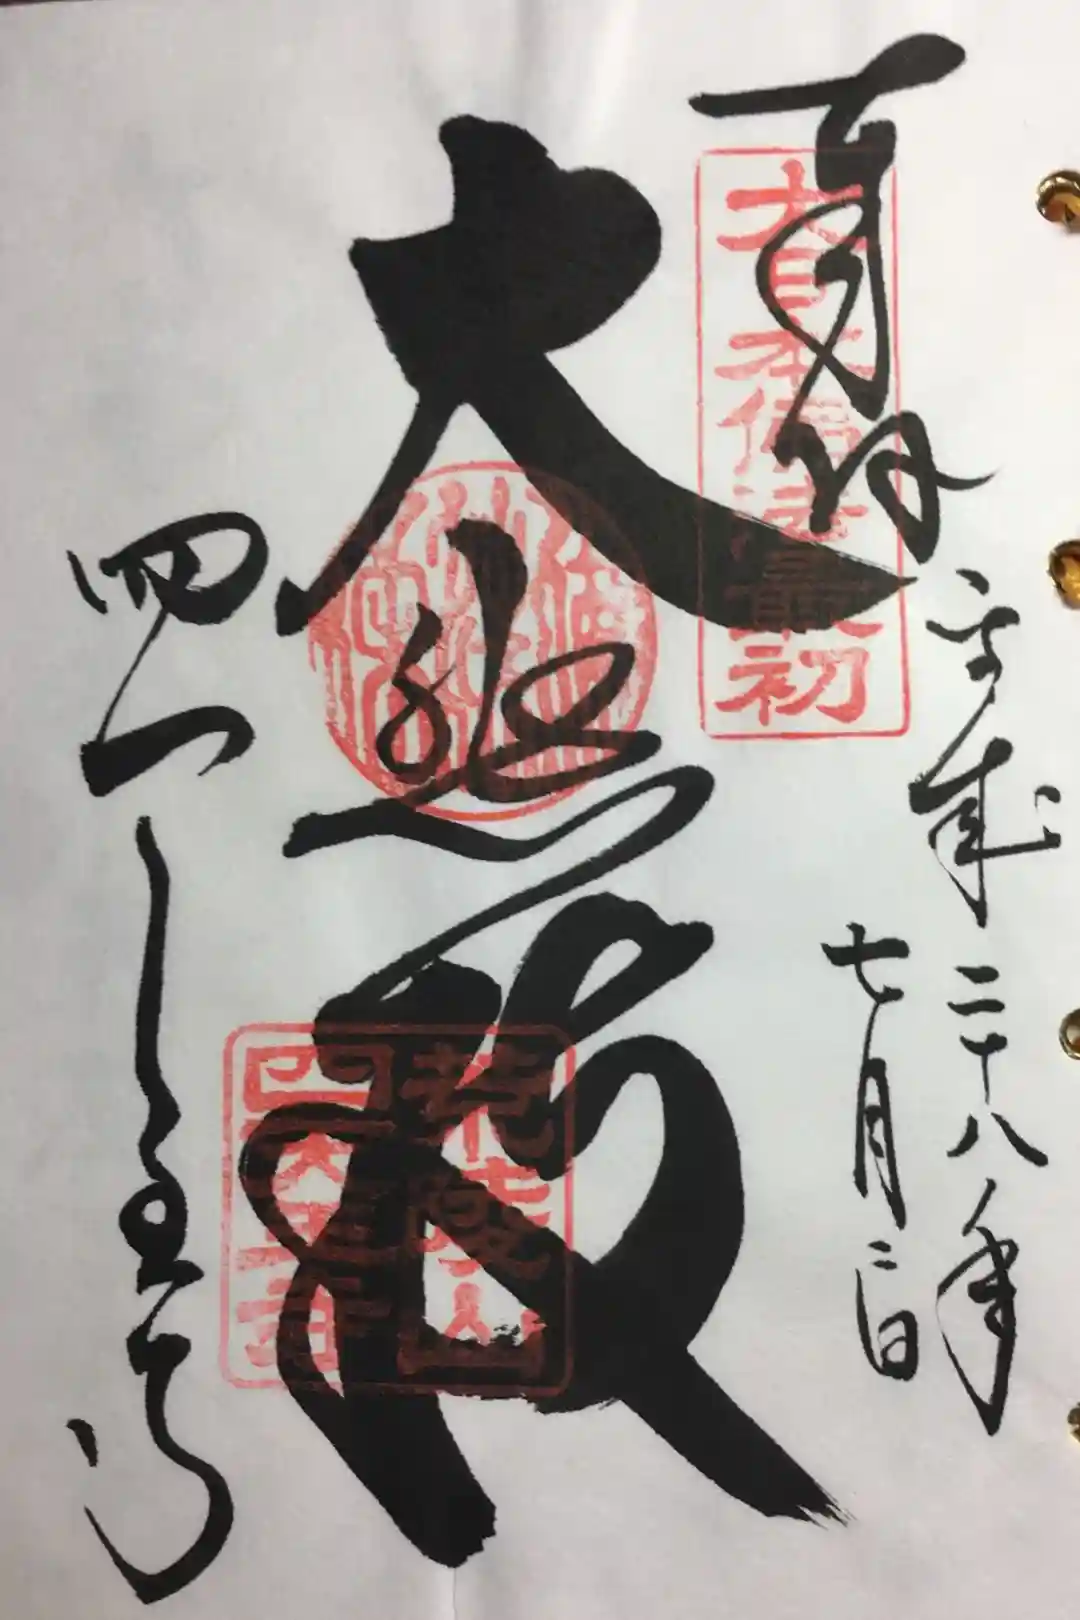 奉拝
平成二十八年
七月二日
大日本佛法最初
大悲殿
四天王寺
荒陵山
四天王寺